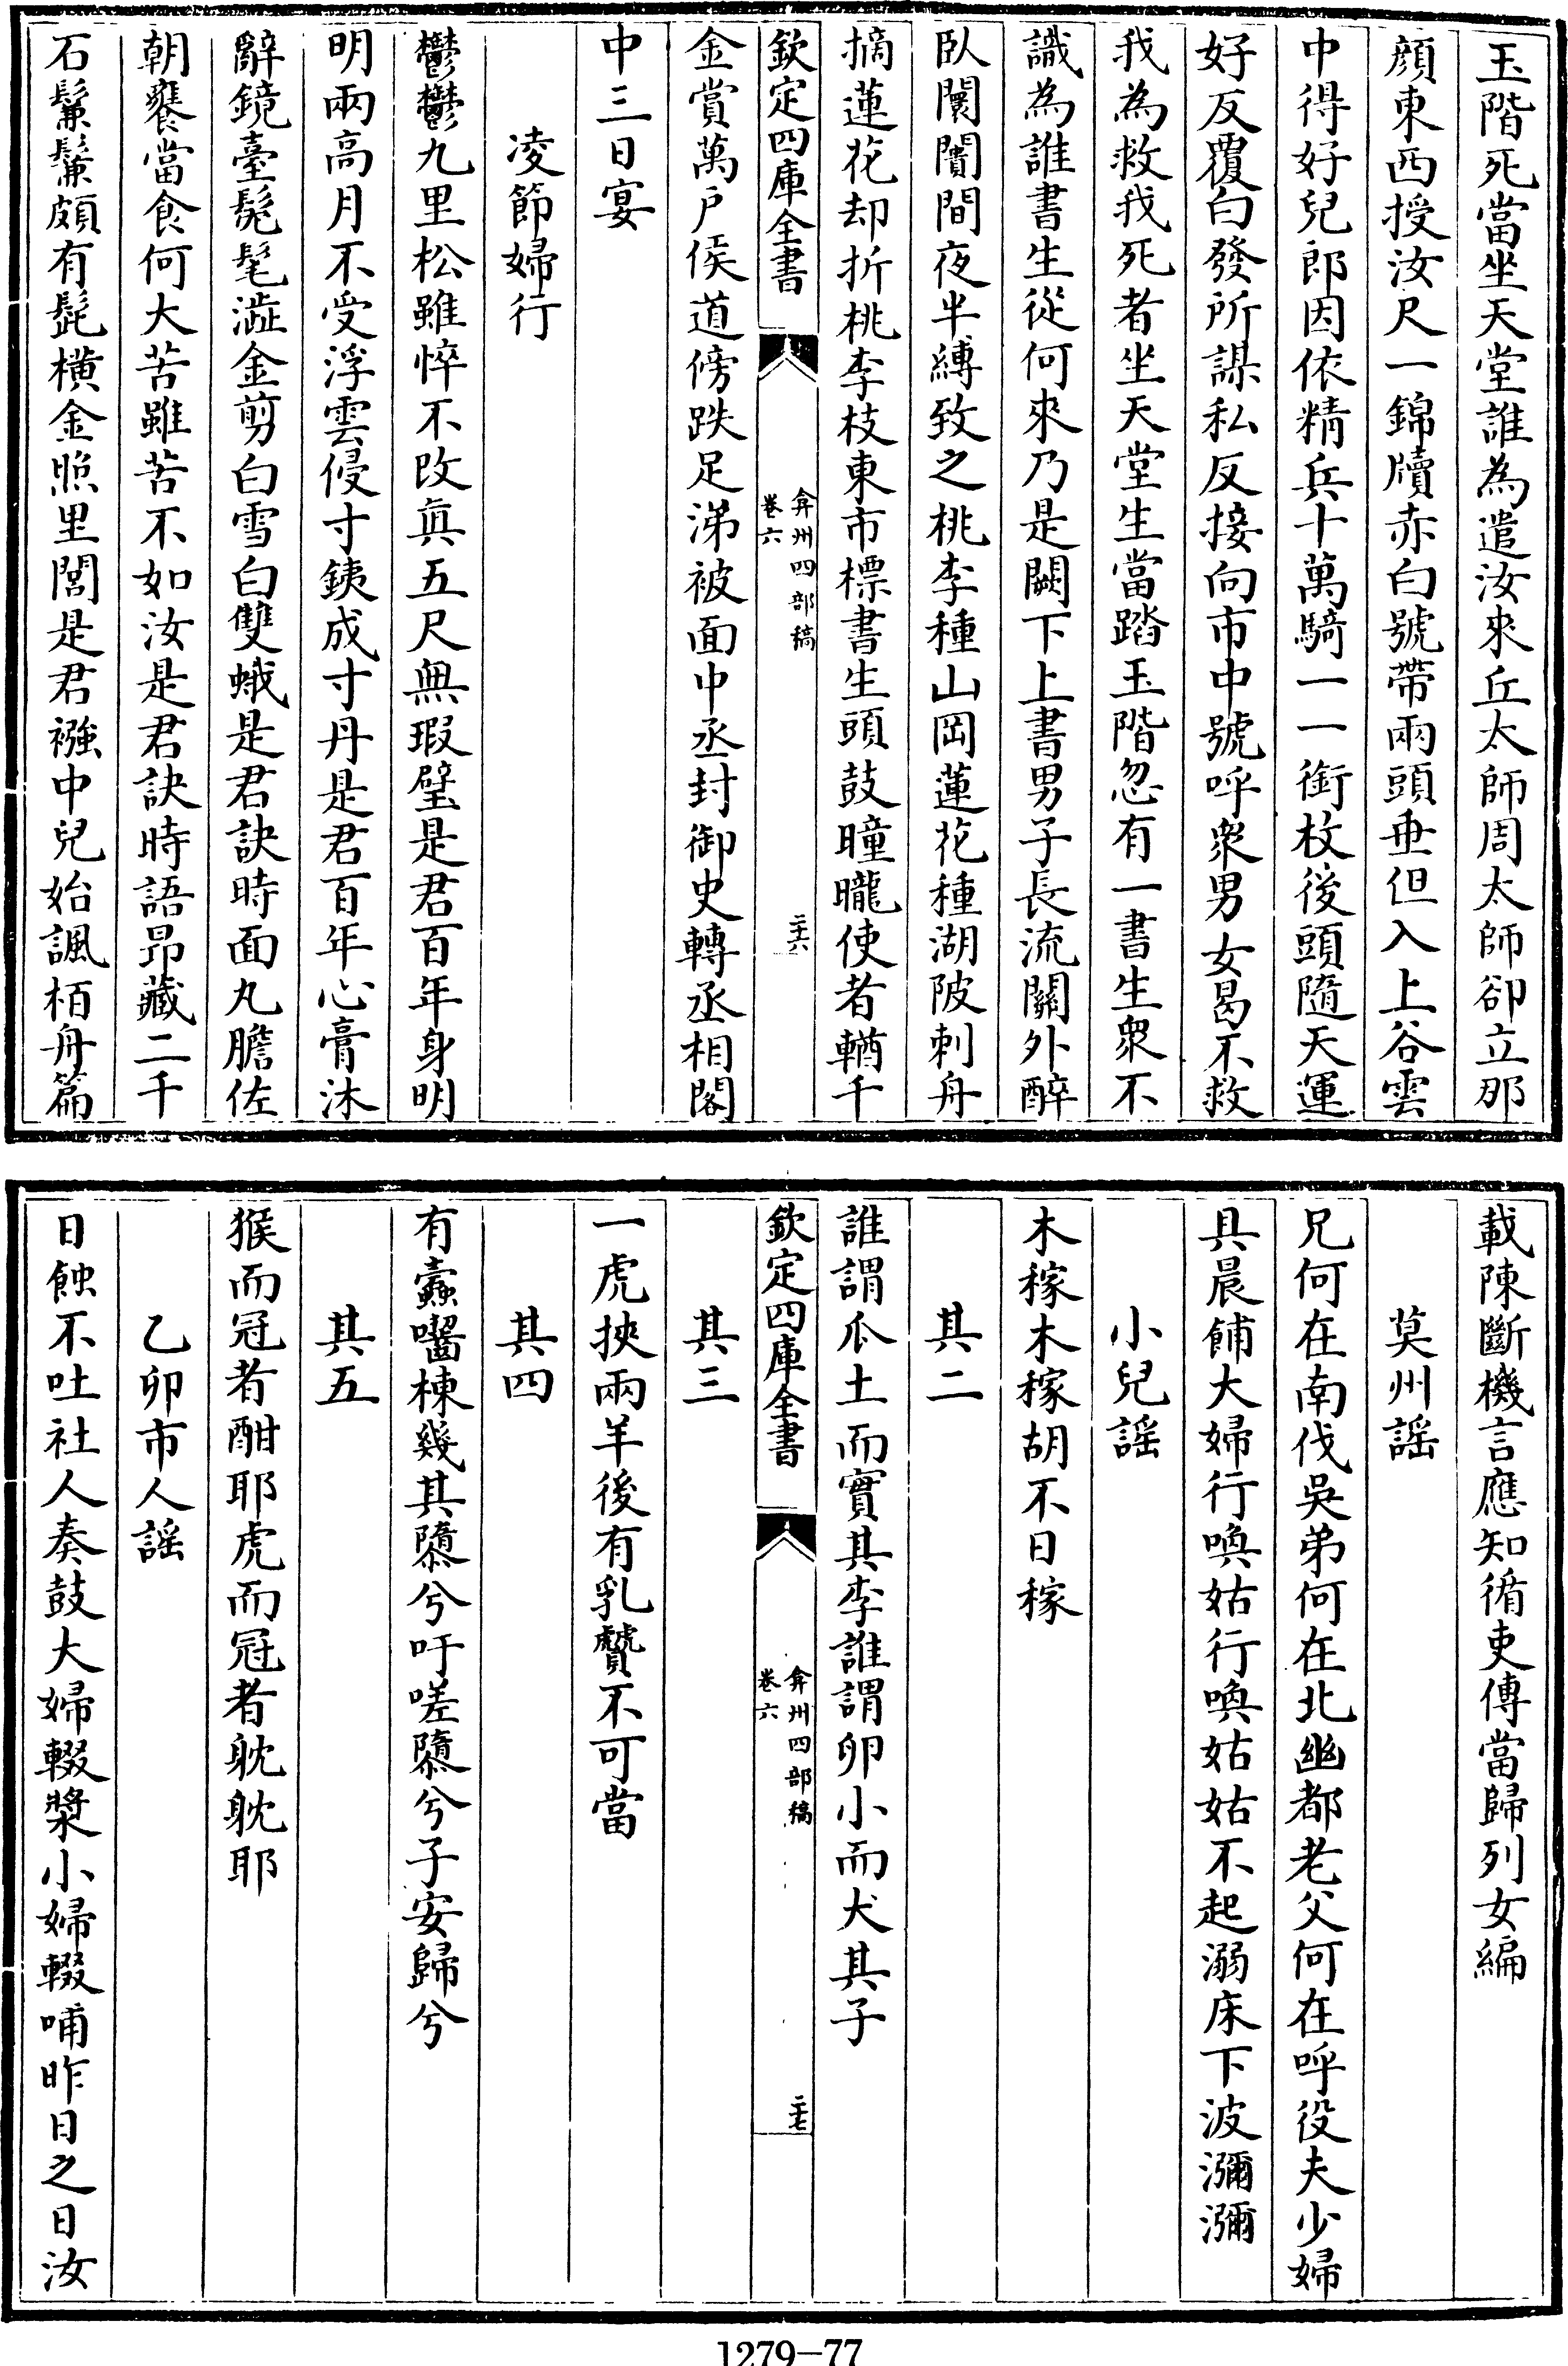 玉階死當坐天堂誰為遣汝來丘太師周太師卻立那
顔東西授汝尺一錦牘赤白號帶兩頭垂但入上谷雲
中得好兒郎因依精兵十萬騎一一銜枚後頭隨天運
好反覆白發所謀私反接向市中號呼衆男女曷不救
我為救我死者坐天堂生當踏玉階忽有一書生衆不
識為誰書生從何來乃是闕下上書男子長流關外醉
臥闤闠間夜半縛致之桃李種山岡蓮花種湖陂刺舟
摘蓮花却折桃李枝東市標書生頭鼓曈曨使者輶千
欽定四庫全書
弇州四部稿
卷六
二六
金賞萬戶侯道傍跌足涕被面中丞封御史轉丞相閣
中三日宴
凌節婦行
鬱鬱九里松雖悴不改真五尺無瑕璧是君百年身明
明兩高月不受浮雲侵寸銕成寸丹是君百年心膏沐
辭鏡臺髡髦澁金剪白雪白雙蛾是君訣時面丸膽佐
朝饔當食何大苦雖苦不如汝是君訣時語昂藏二千
石鬑鬑頗有髭橫金照里閭是君襁中兒始諷栢舟篇
載陳斷機言應知循吏傳當歸列女編
莫州謡
兄何在南伐吳弟何在北幽都老父何在呼役夫少婦
具晨餔大婦行喚姑行喚姑姑不起溺床下波瀰瀰
小兒謡
木稼木稼胡不日稼
其二
誰謂瓜土而實其李誰謂卵小而犬其子
欽定四庫全書
弇州四部稿
卷六
二七
其三
一虎挾兩羊後有乳贙不可當
其四
有蠹囓棟幾其隳兮吁嗟隳兮子安歸兮
其五
猴而冠者酣耶虎而冠者躭躭耶
乙卯市人謡
日蝕不吐社人奏鼓大婦輟漿小婦輟哺昨日之日汝
1279-77